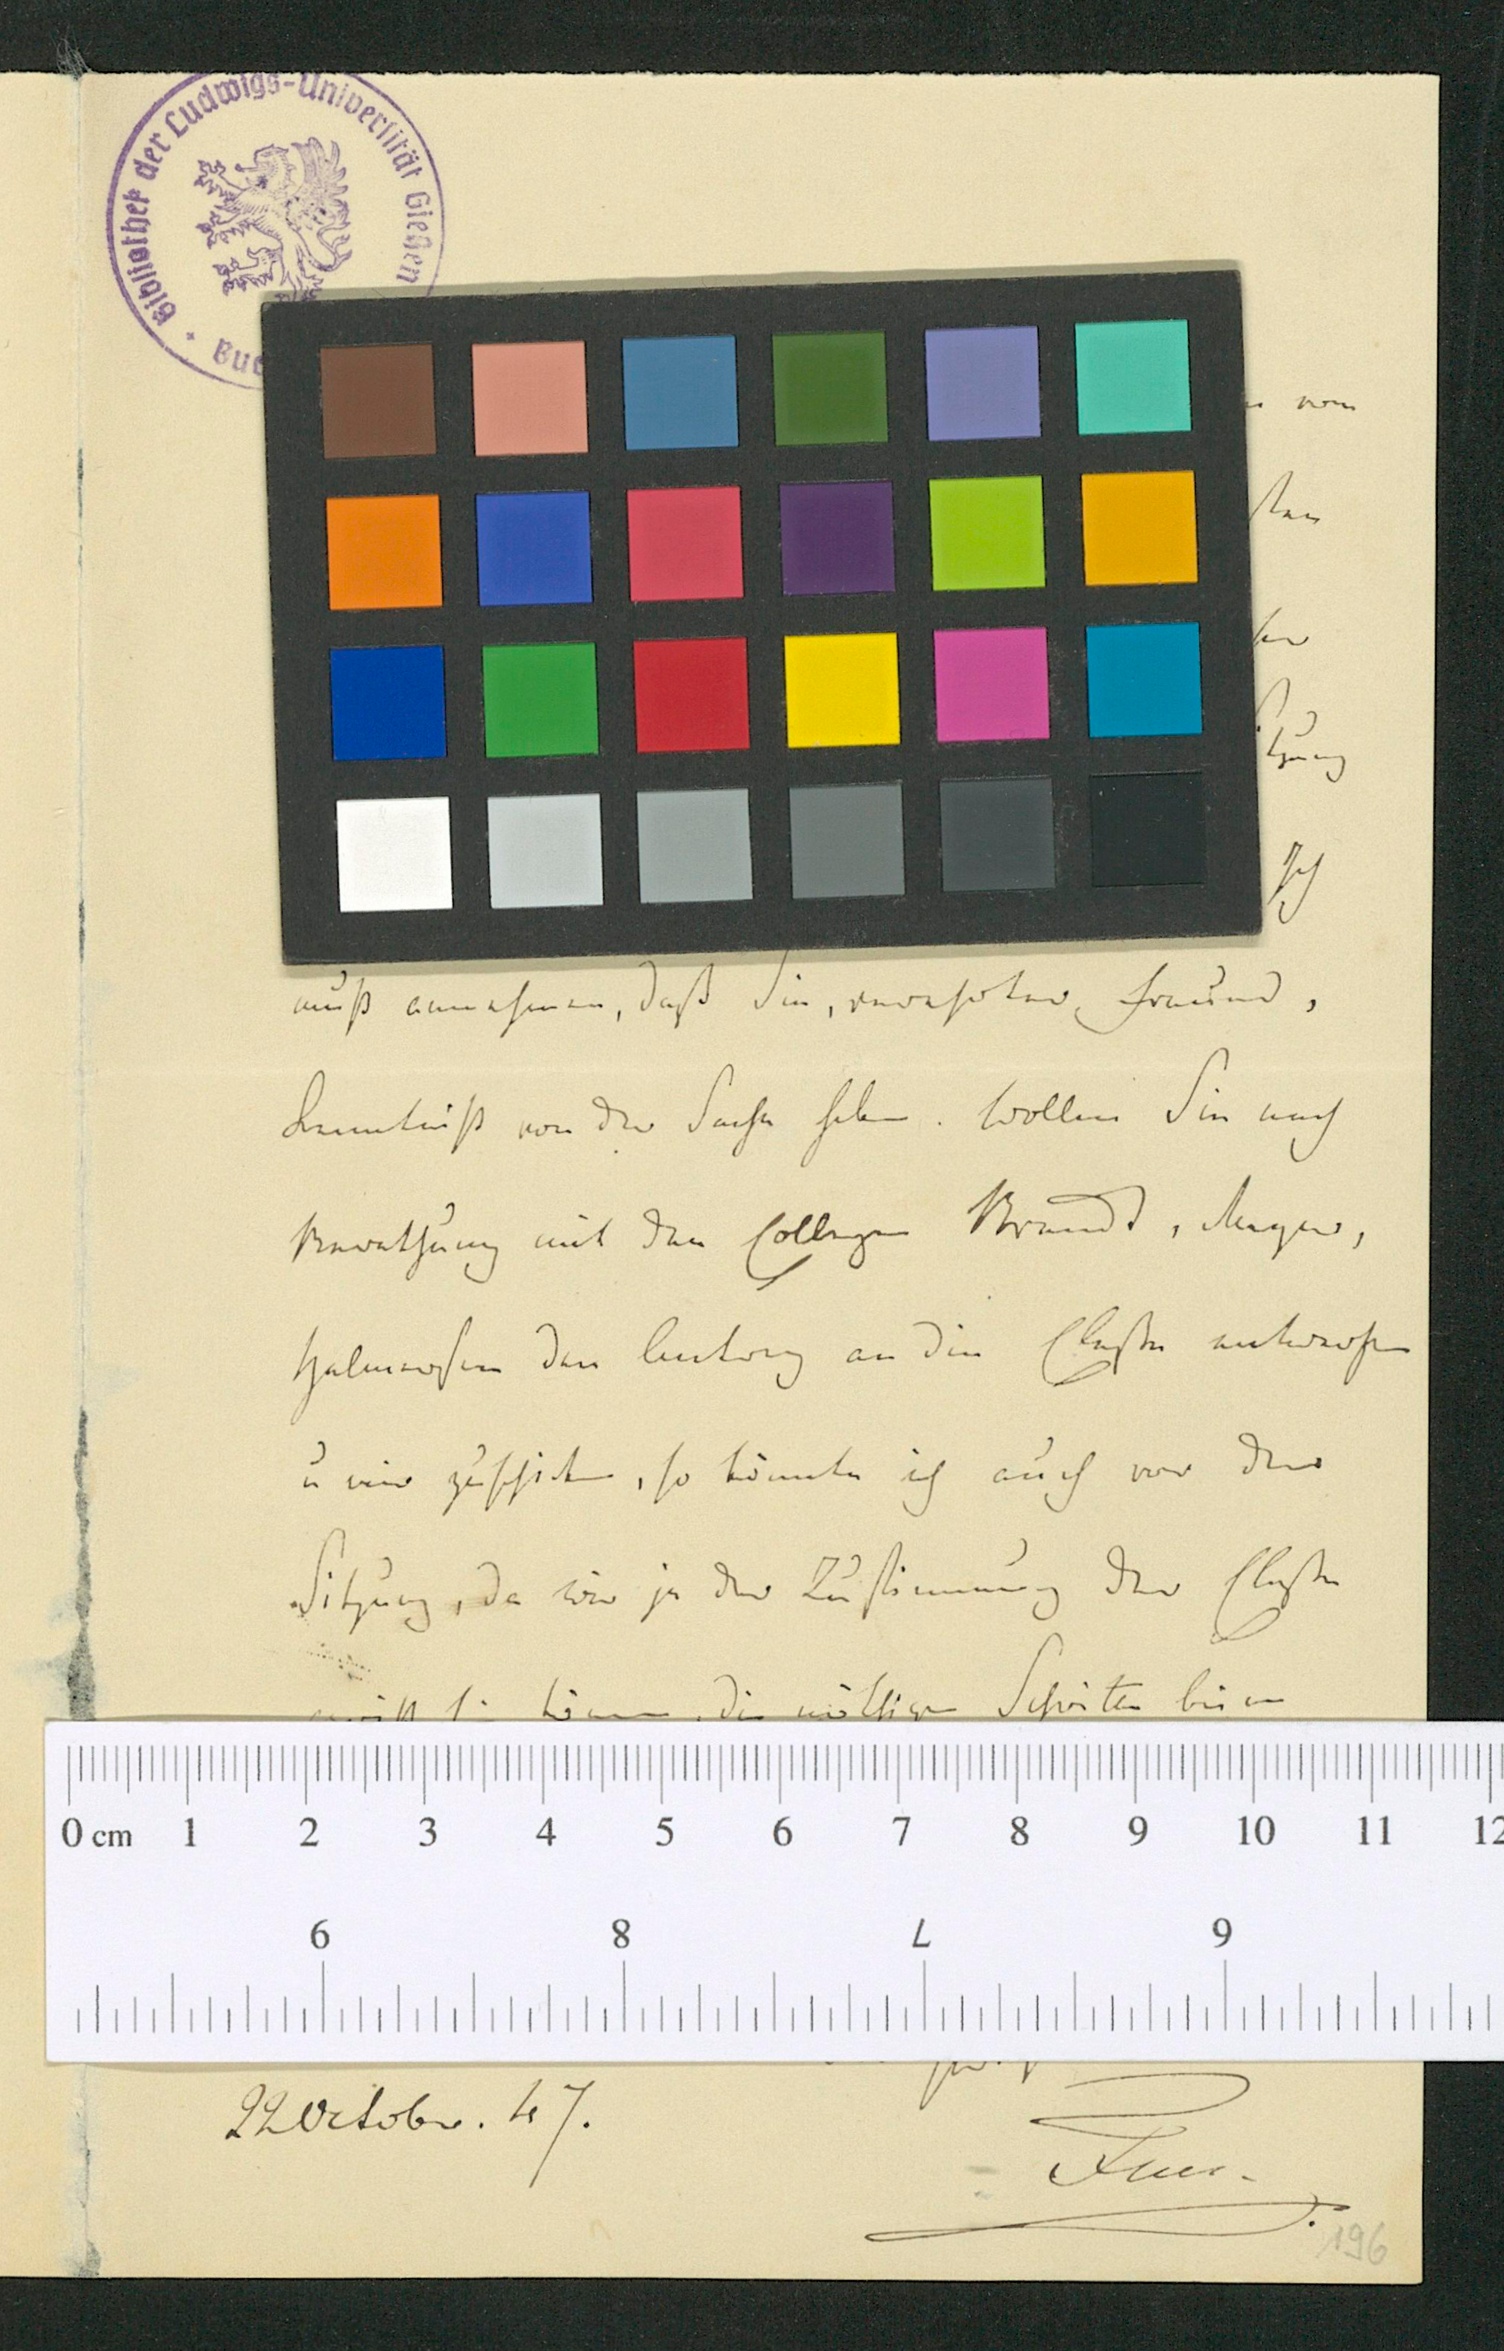 Bibliothek der Ludwigs-Universität Gießen
von
sten
Ich
muß annehmen, daß Sie, verehrter Freund,
Kenntniß von der Sache haben. Wollen Sie nach
Berathung mit den Collegen Brandt, Meyer,
den Antrag an die Classe entwerfen
u mir zuschicken, so könnte ich auch vor der
Sitzung, da wir ja der Zustimmung der Classe
gewiß sein können, die nöthigen Schritte bei
0 cm 1 2 3 4 5 6 7 8 9 10 11 12
6 8 7 9
22 October. 47.
196